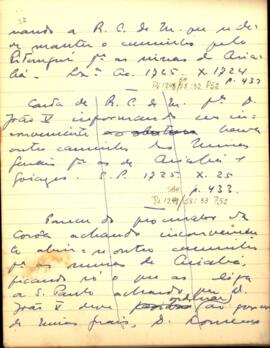 32
mando a R. C. de M. que se de-
ve manter o caminho pelo
Pitangui pª as minas de Cuia-
bá. Lxª Ac. 1725. X. 1724
p. 433
Carta de R. C. de M. pª D.
João V informando ser in-
conveniente haver
outro caminho das Minas
Gerais pª as de Cuiabá e
Goiazes. C. P. 1725. X. 25
p. 433.
Parecer do procurador da
Coroa achando inconveniente
abrir-se outro caminho
pª as minas de Cuiabá,
ficando só o que as liga
a S. Paulo achando que D.
João V deve ordenar ao gover.
de minas gerais, D. Lourenço